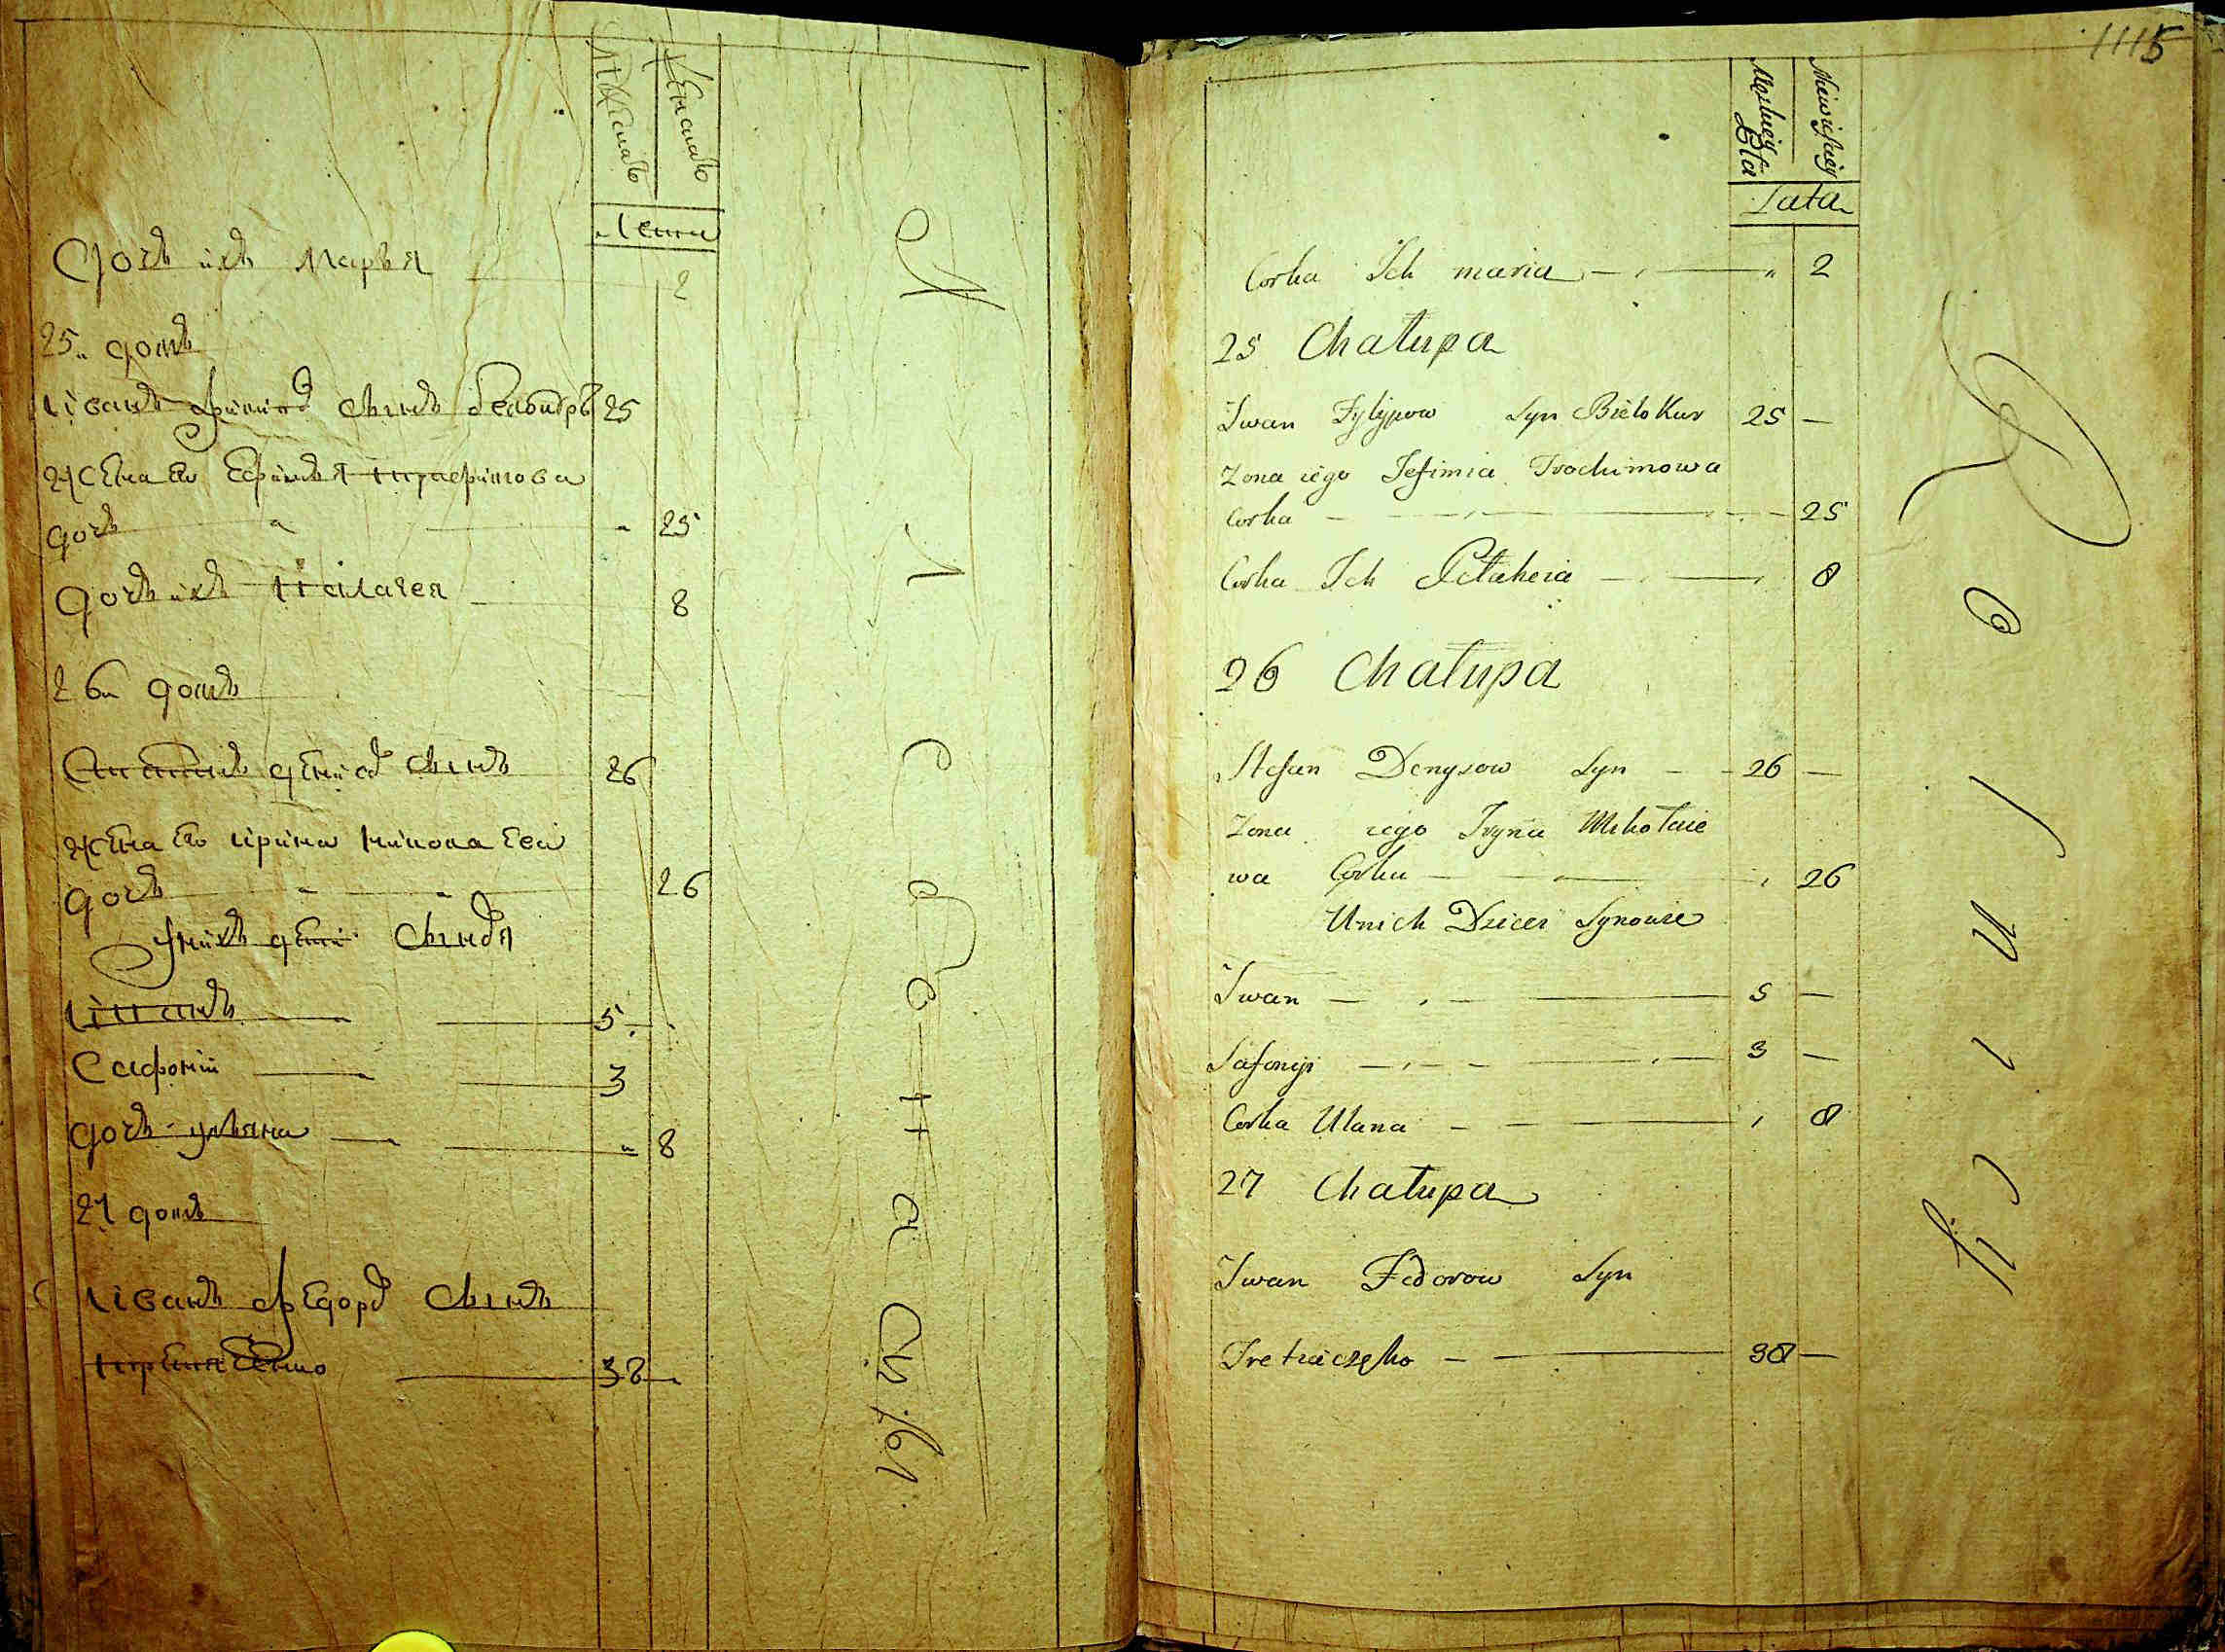 Мужска
Женска
Лети
Дочь ихъ Марья 2
25й домъ
Иванъ филиповъ сынъ белокуръ 25
Жена его Ефимья Трафимова
дочь 25
Дочь ихъ Палагея 8
26й домъ
Степанъ денисовъ сынъ 26
Жена его Ирина Николаева
дочь 26
У нихъ дети сыновья
Иванъ 5
Сафоний 3
Дочь ульяна 8
27 домъ
Иванъ федоровъ сынъ
38
1115
Męskiey Płci
Niewieściey
Lata
Corka Ich maria 2
25 Chałupa
Iwan Fylypow Syn Bieło Kur 25 —
Zona iego Jefimia Trochimowa
Corka 25
Corka Ich Pełaheia 8
26 Chałupa
Stefan Denysow Syn 26 —
Zona iego Iryna Mikołaie
wa Corka 26
Unich Dzieci Synowie
Iwan 5 —
Safonyi 3 —
Corka Ulana 8
27 Chałupa
Iwan Fedorow Syn
38 —